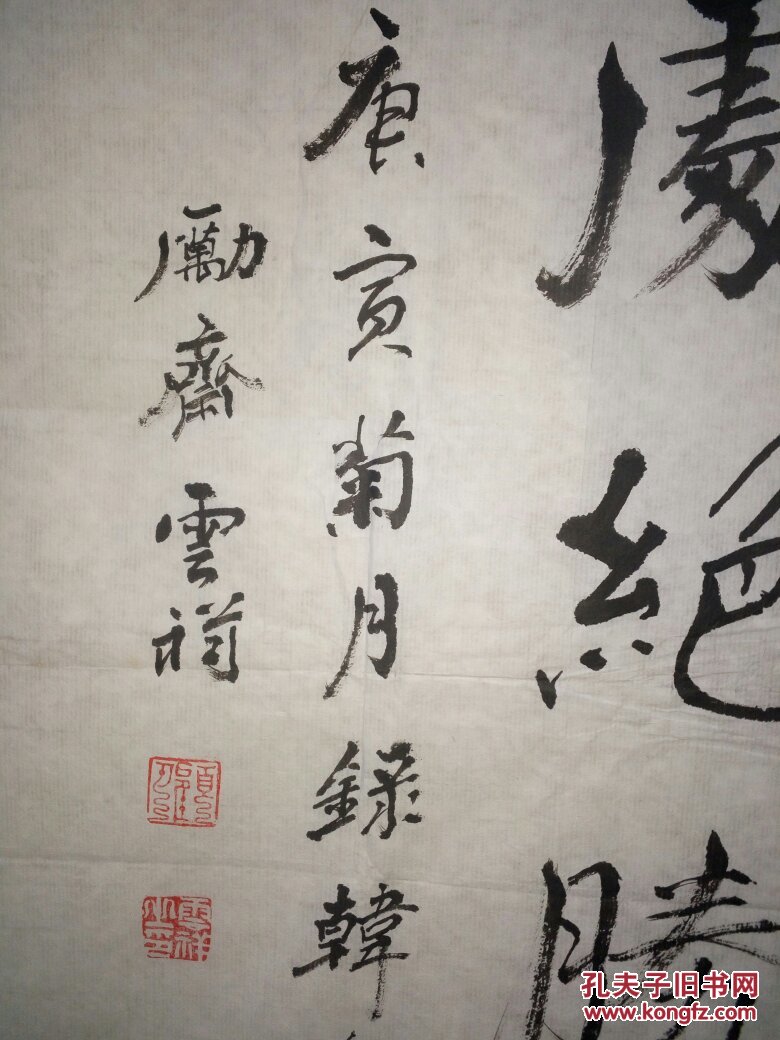 處絕勝
庚寅菊月錄韓
勵齋雲祥
孔夫子旧书网
www.kongfz.com